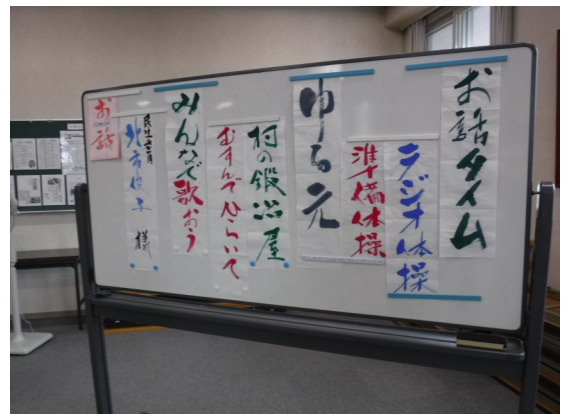 お話タイム
ラジオ体操
準備体操
ゆる元
村の鍛冶屋
むすんでひらいて
みんなで歌おう
お話
民生委員
様